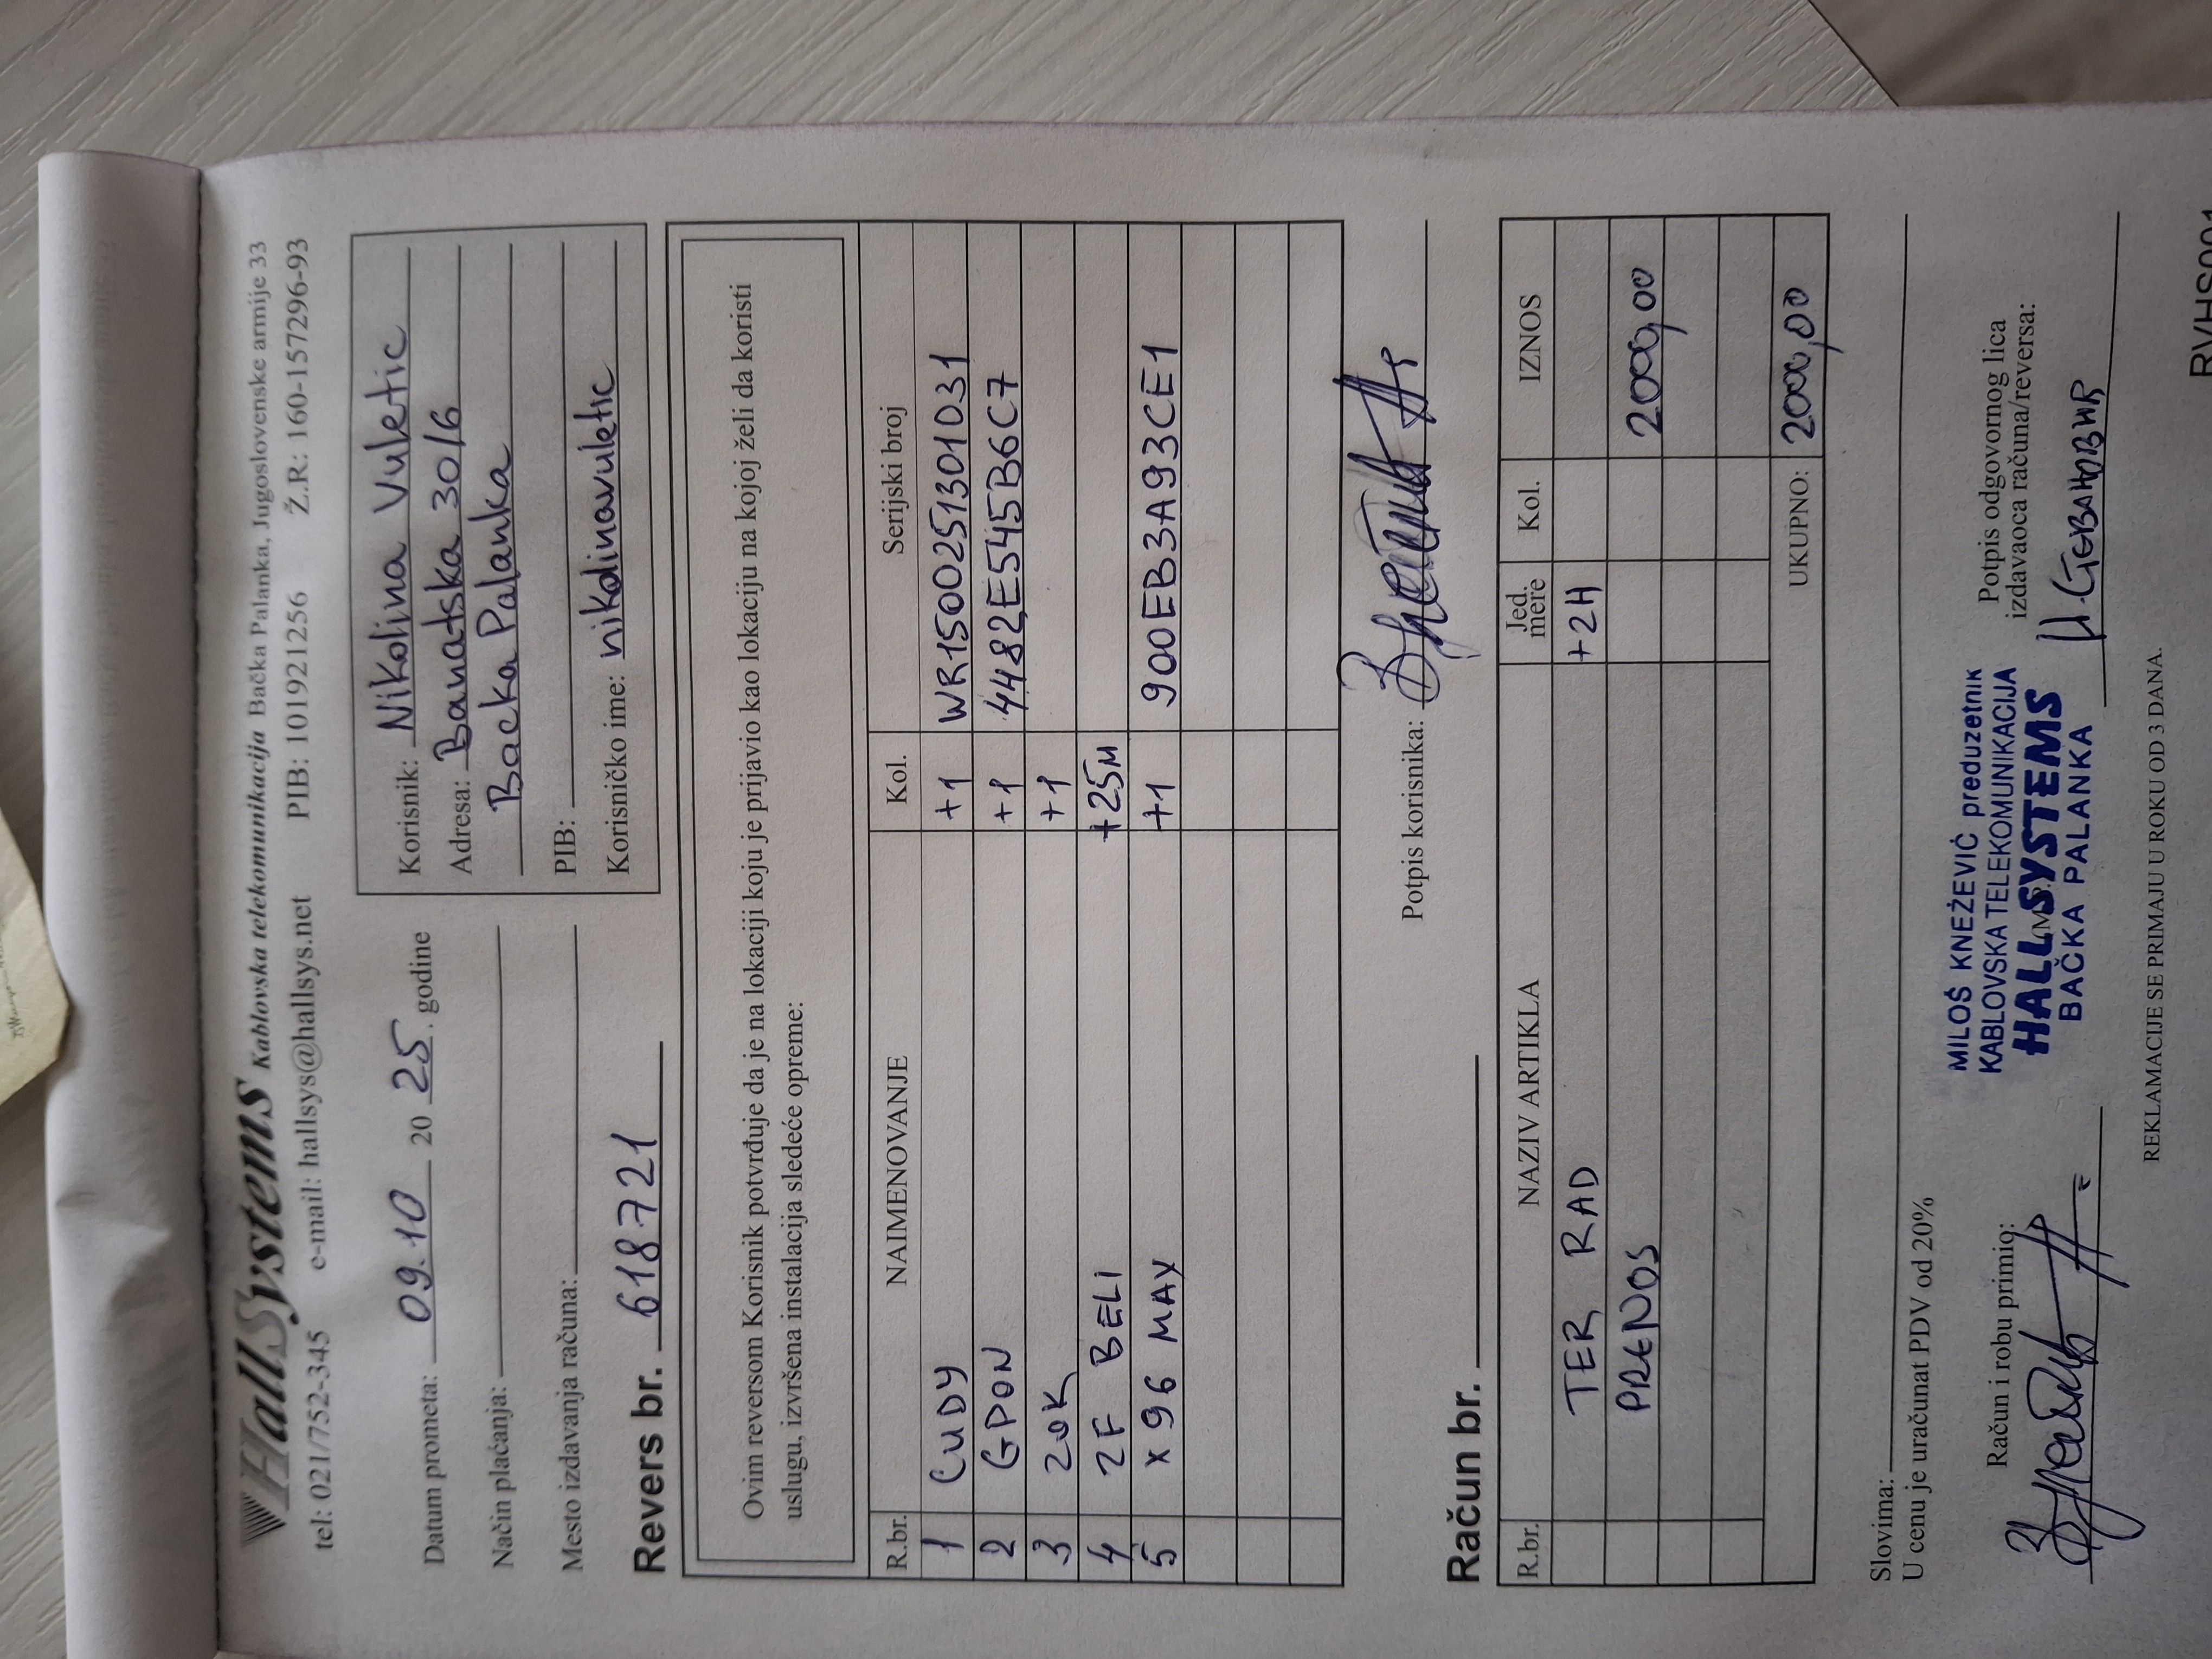 HallSystems Kablovska telekomunikacija Bačka Palanka, Jugoslovenske armije 33
tel: 021/752-345 e-mail: hallsys@hallsys.net PIB: 101921256 Ž.R: 160-157296-93
Datum prometa: 09.10 20 25. godine
Način plaćanja:
Mesto izdavanja računa:
Korisnik: Nikolina Vuletic
Adresa: Banatska 30/6
Backa Palanka
PIB:
Korisničko ime: nikolinavuletic
Revers br. 618721
Ovim reversom Korisnik potvrđuje da je na lokaciji koju je prijavio kao lokaciju na kojoj želi da koristi
uslugu, izvršena instalacija sledeće opreme:
R.br. NAIMENOVANJE Kol. Serijski broj
1 CUDY +1 WR1500251301031
2 GPON +1 4482E545B6C7
3 20K +1
4 2F BELI +25M
5 X96 MAX +1 900EB3A93CE1
Potpis korisnika:
Račun br.
R.br. NAZIV ARTIKLA Jed. mere Kol. IZNOS
TER RAD +2H
PRENOS 2000,00
UKUPNO: 2000,00
Slovima:
U cenu je uračunat PDV od 20%
Račun i robu primio:
MILOŠ KNEŽEVIĆ preduzetnik
KABLOVSKA TELEKOMUNIKACIJA
HALLSYSTEMS
BAČKA PALANKA
Potpis odgovornog lica
izdavaoca računa/reversa:
REKLAMACIJE SE PRIMAJU U ROKU OD 3 DANA.
RVHS001